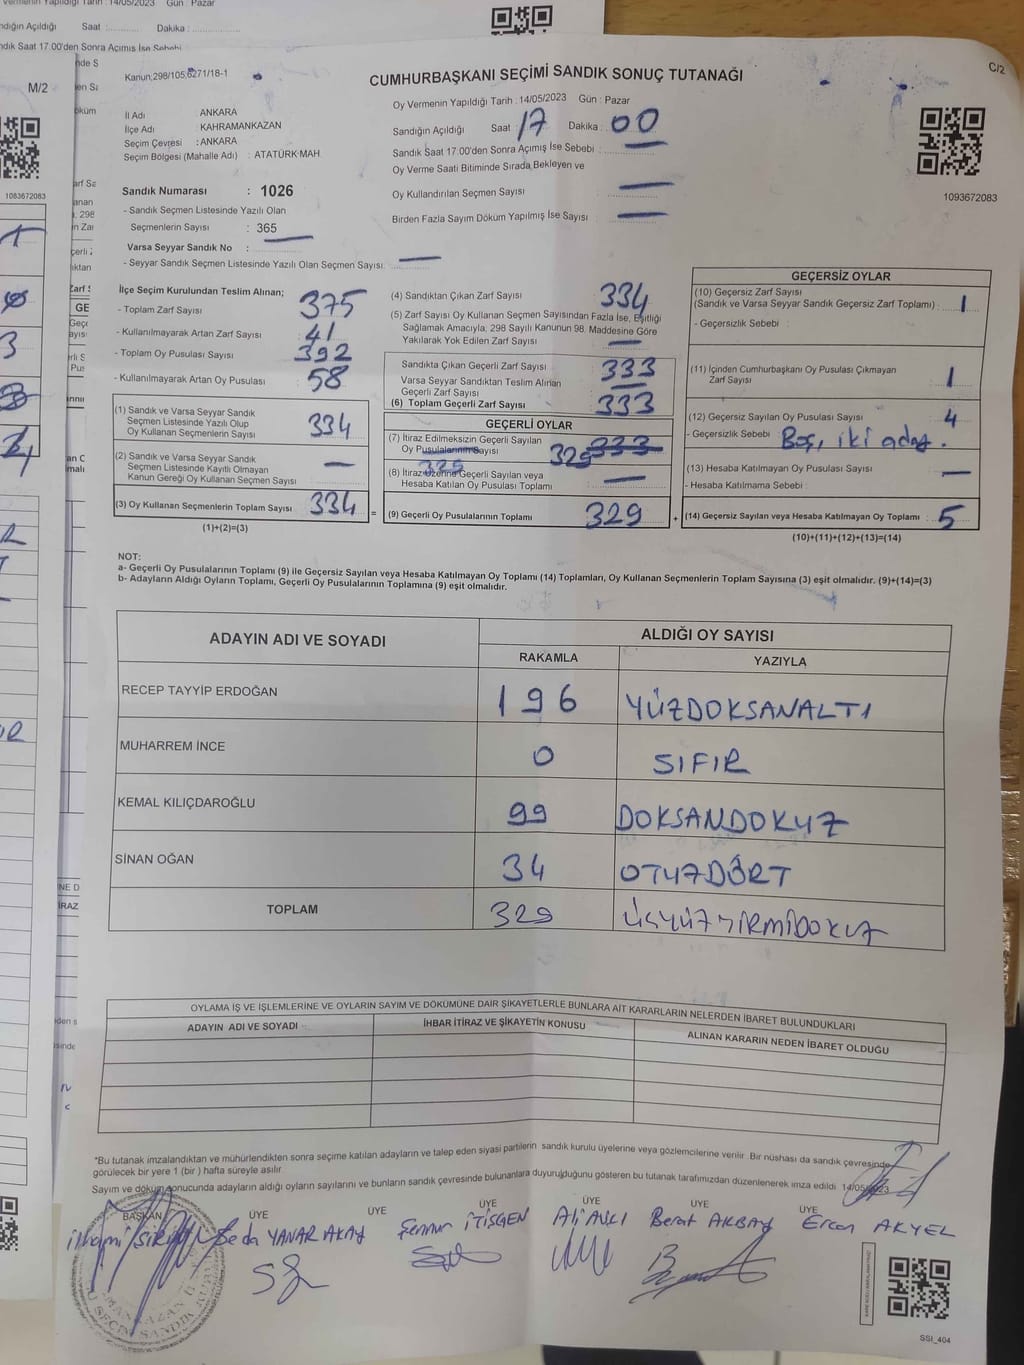 Kanun;298/105,6271/18-1
CUMHURBAŞKANI SEÇİMİ SANDIK SONUÇ TUTANAĞI
C/2
M/2
İl Adı ANKARA
İlçe Adı KAHRAMANKAZAN
Seçim Çevresi : ANKARA
Seçim Bölgesi (Mahalle Adı) : ATATÜRK MAH
Oy Vermenin Yapıldığı Tarih : 14/05/2023 Gün : Pazar
Sandığın Açıldığı Saat : 17 Dakika : 00
Sandık Saat 17:00'den Sonra Açımış İse Sebebi :
Oy Verme Saati Bitiminde Sırada Bekleyen ve
Oy Kullandırılan Seçmen Sayısı
Birden Fazla Sayım Döküm Yapılmış İse Sayısı
1093672083
1083672083
Sandık Numarası : 1026
- Sandık Seçmen Listesinde Yazılı Olan
Seçmenlerin Sayısı : 365
Varsa Seyyar Sandık No :
- Seyyar Sandık Seçmen Listesinde Yazılı Olan Seçmen Sayısı:
İlçe Seçim Kurulundan Teslim Alınan;
- Toplam Zarf Sayısı 375
- Kullanılmayarak Artan Zarf Sayısı 41
- Toplam Oy Pusulası Sayısı 392
- Kullanılmayarak Artan Oy Pusulası 58
(1) Sandık ve Varsa Seyyar Sandık
Seçmen Listesinde Yazılı Olup
Oy Kullanan Seçmenlerin Sayısı 334
(2) Sandık ve Varsa Seyyar Sandık
Seçmen Listesinde Kayıtlı Olmayan
Kanun Gereği Oy Kullanan Seçmen Sayısı
(3) Oy Kullanan Seçmenlerin Toplam Sayısı 334
(1)+(2)=(3)
(4) Sandıktan Çıkan Zarf Sayısı 334
(5) Zarf Sayısı Oy Kullanan Seçmen Sayısından Fazla İse, Eşitliği
Sağlamak Amacıyla; 298 Sayılı Kanunun 98. Maddesine Göre
Yakılarak Yok Edilen Zarf Sayısı
Sandıkta Çıkan Geçerli Zarf Sayısı 333
Varsa Seyyar Sandıktan Teslim Alınan
Geçerli Zarf Sayısı
(6) Toplam Geçerli Zarf Sayısı 333
GEÇERLİ OYLAR
(7) İtiraz Edilmeksizin Geçerli Sayılan
Oy Pusulalarının Sayısı 329 333
329
(8) İtiraz Üzerine Geçerli Sayılan veya
Hesaba Katılan Oy Pusulası Toplamı
(9) Geçerli Oy Pusulalarının Toplamı 329
GEÇERSİZ OYLAR
(10) Geçersiz Zarf Sayısı
(Sandık ve Varsa Seyyar Sandık Geçersiz Zarf Toplamı) : 1
- Geçersizlik Sebebi :
(11) İçinden Cumhurbaşkanı Oy Pusulası Çıkmayan
Zarf Sayısı 1
(12) Geçersiz Sayılan Oy Pusulası Sayısı 4
- Geçersizlik Sebebi Boş, iki aday.
(13) Hesaba Katılmayan Oy Pusulası Sayısı
- Hesaba Katılmama Sebebi :
(14) Geçersiz Sayılan veya Hesaba Katılmayan Oy Toplamı : 5
(10)+(11)+(12)+(13)=(14)
NOT:
a- Geçerli Oy Pusulalarının Toplamı (9) ile Geçersiz Sayılan veya Hesaba Katılmayan Oy Toplamı (14) Toplamları, Oy Kullanan Seçmenlerin Toplam Sayısına (3) eşit olmalıdır. (9)+(14)=(3)
b- Adayların Aldığı Oyların Toplamı, Geçerli Oy Pusulalarının Toplamına (9) eşit olmalıdır.
ADAYIN ADI VE SOYADI ALDIĞI OY SAYISI
RAKAMLA YAZIYLA
RECEP TAYYİP ERDOĞAN 196 YÜZDOKSANALTI
MUHARREM İNCE 0 SIFIR
KEMAL KILIÇDAROĞLU 99 DOKSANDOKUZ
SİNAN OĞAN 34 OTUZDÖRT
TOPLAM 329 ÜÇYÜZYİRMİDOKUZ
OYLAMA İŞ VE İŞLEMLERİNE VE OYLARIN SAYIM VE DÖKÜMÜNE DAİR ŞİKAYETLERLE BUNLARA AİT KARARLARIN NELERDEN İBARET BULUNDUKLARI
ADAYIN ADI VE SOYADI İHBAR İTİRAZ VE ŞİKAYETİN KONUSU ALINAN KARARIN NEDEN İBARET OLDUĞU
*Bu tutanak imzalandıktan ve mühürlendikten sonra seçime katılan adayların ve talep eden siyasi partilerin sandık kurulu üyelerine veya gözlemcilerine verilir. Bir nüshası da sandık çevresinde
görülecek bir yere 1 (bir ) hafta süreyle asılır.
Sayım ve döküm sonucunda adayların aldığı oyların sayılarını ve bunların sandık çevresinde bulunanlara duyurulduğunu gösteren bu tutanak tarafımızdan düzenlenerek imza edildi. 14/05/2023
BAŞKAN ÜYE ÜYE ÜYE ÜYE ÜYE ÜYE
Seda YANAR AKAY İTİSGEN Ali AVCI Berat AKBAY Ercan AKYEL
SSI_404